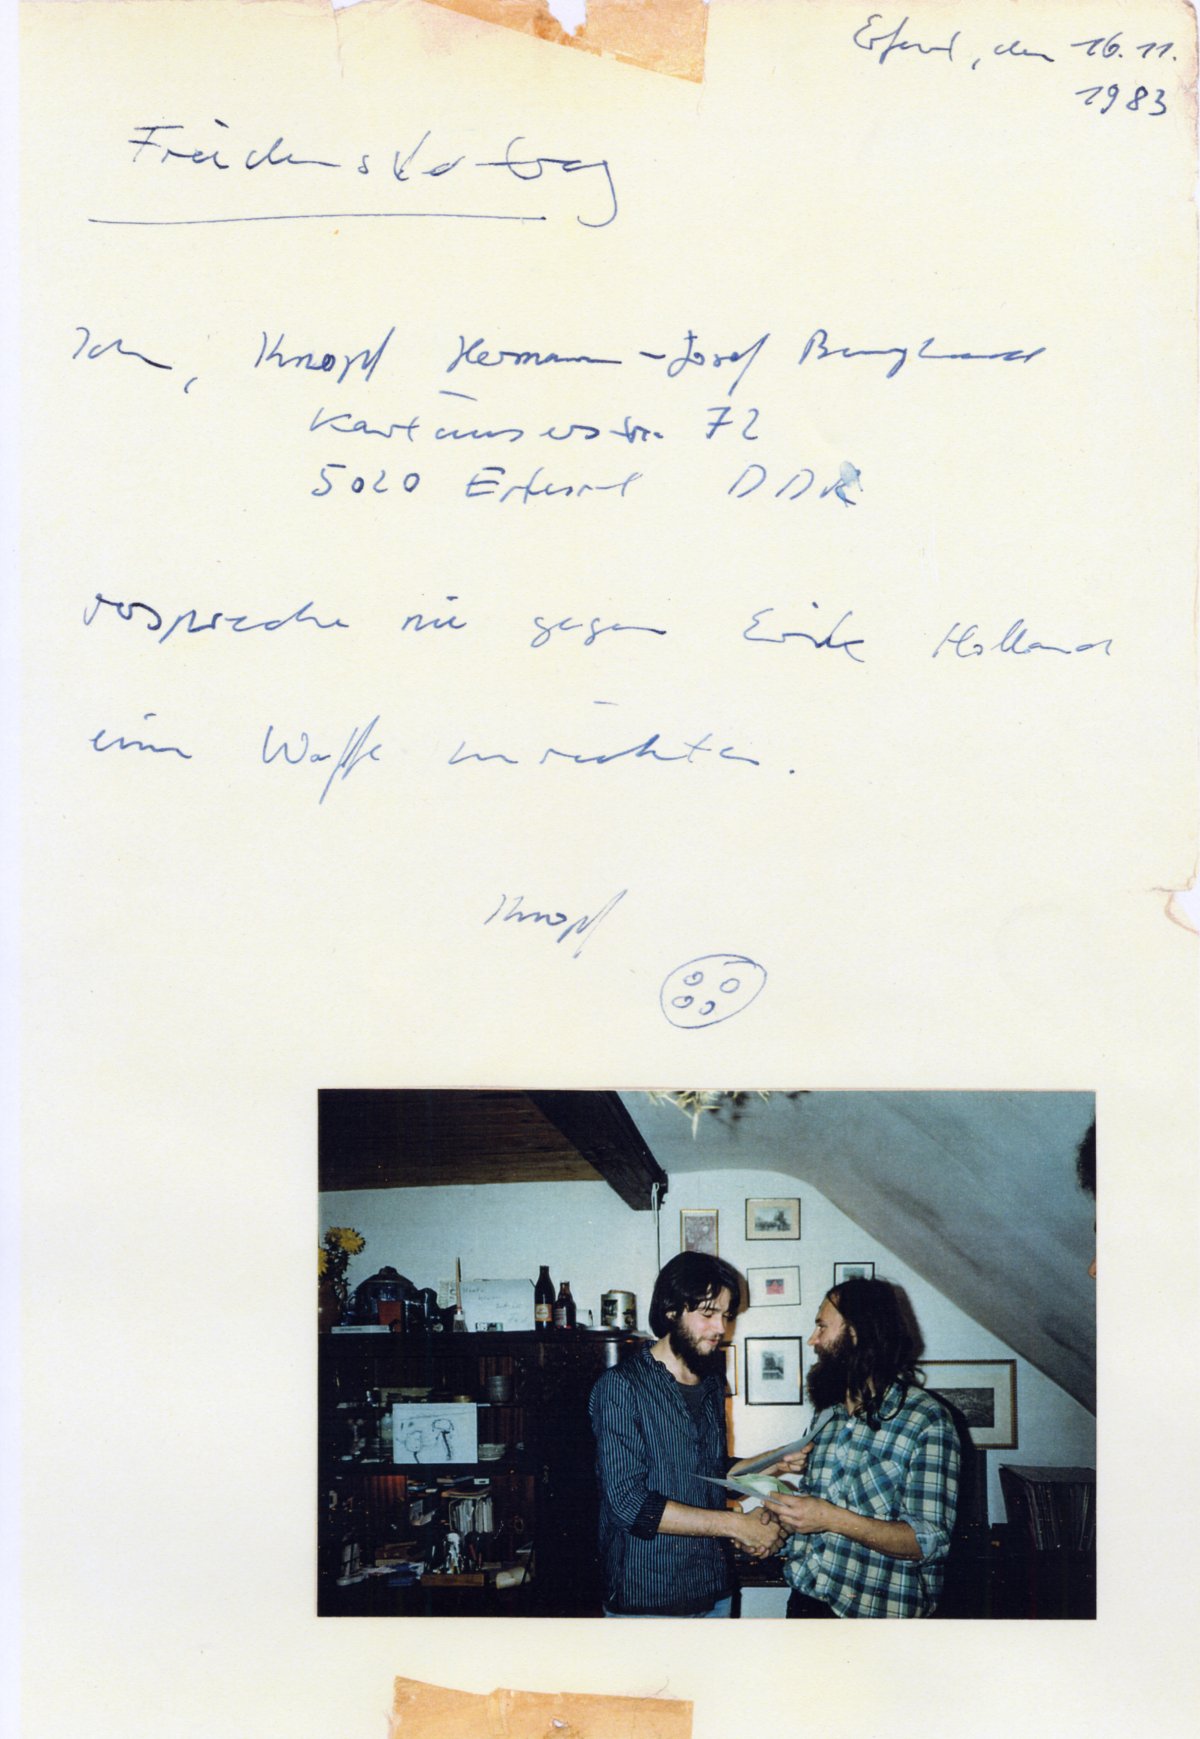 Erfurt, den 16.11.
1983
Friedensvertrag
Ich, Knopf Hermann-Josef
Kartäuserstr. 72
5020 Erfurt DDR
verspreche nie gegen Holland
eine Waffe zu richten.
Knopf